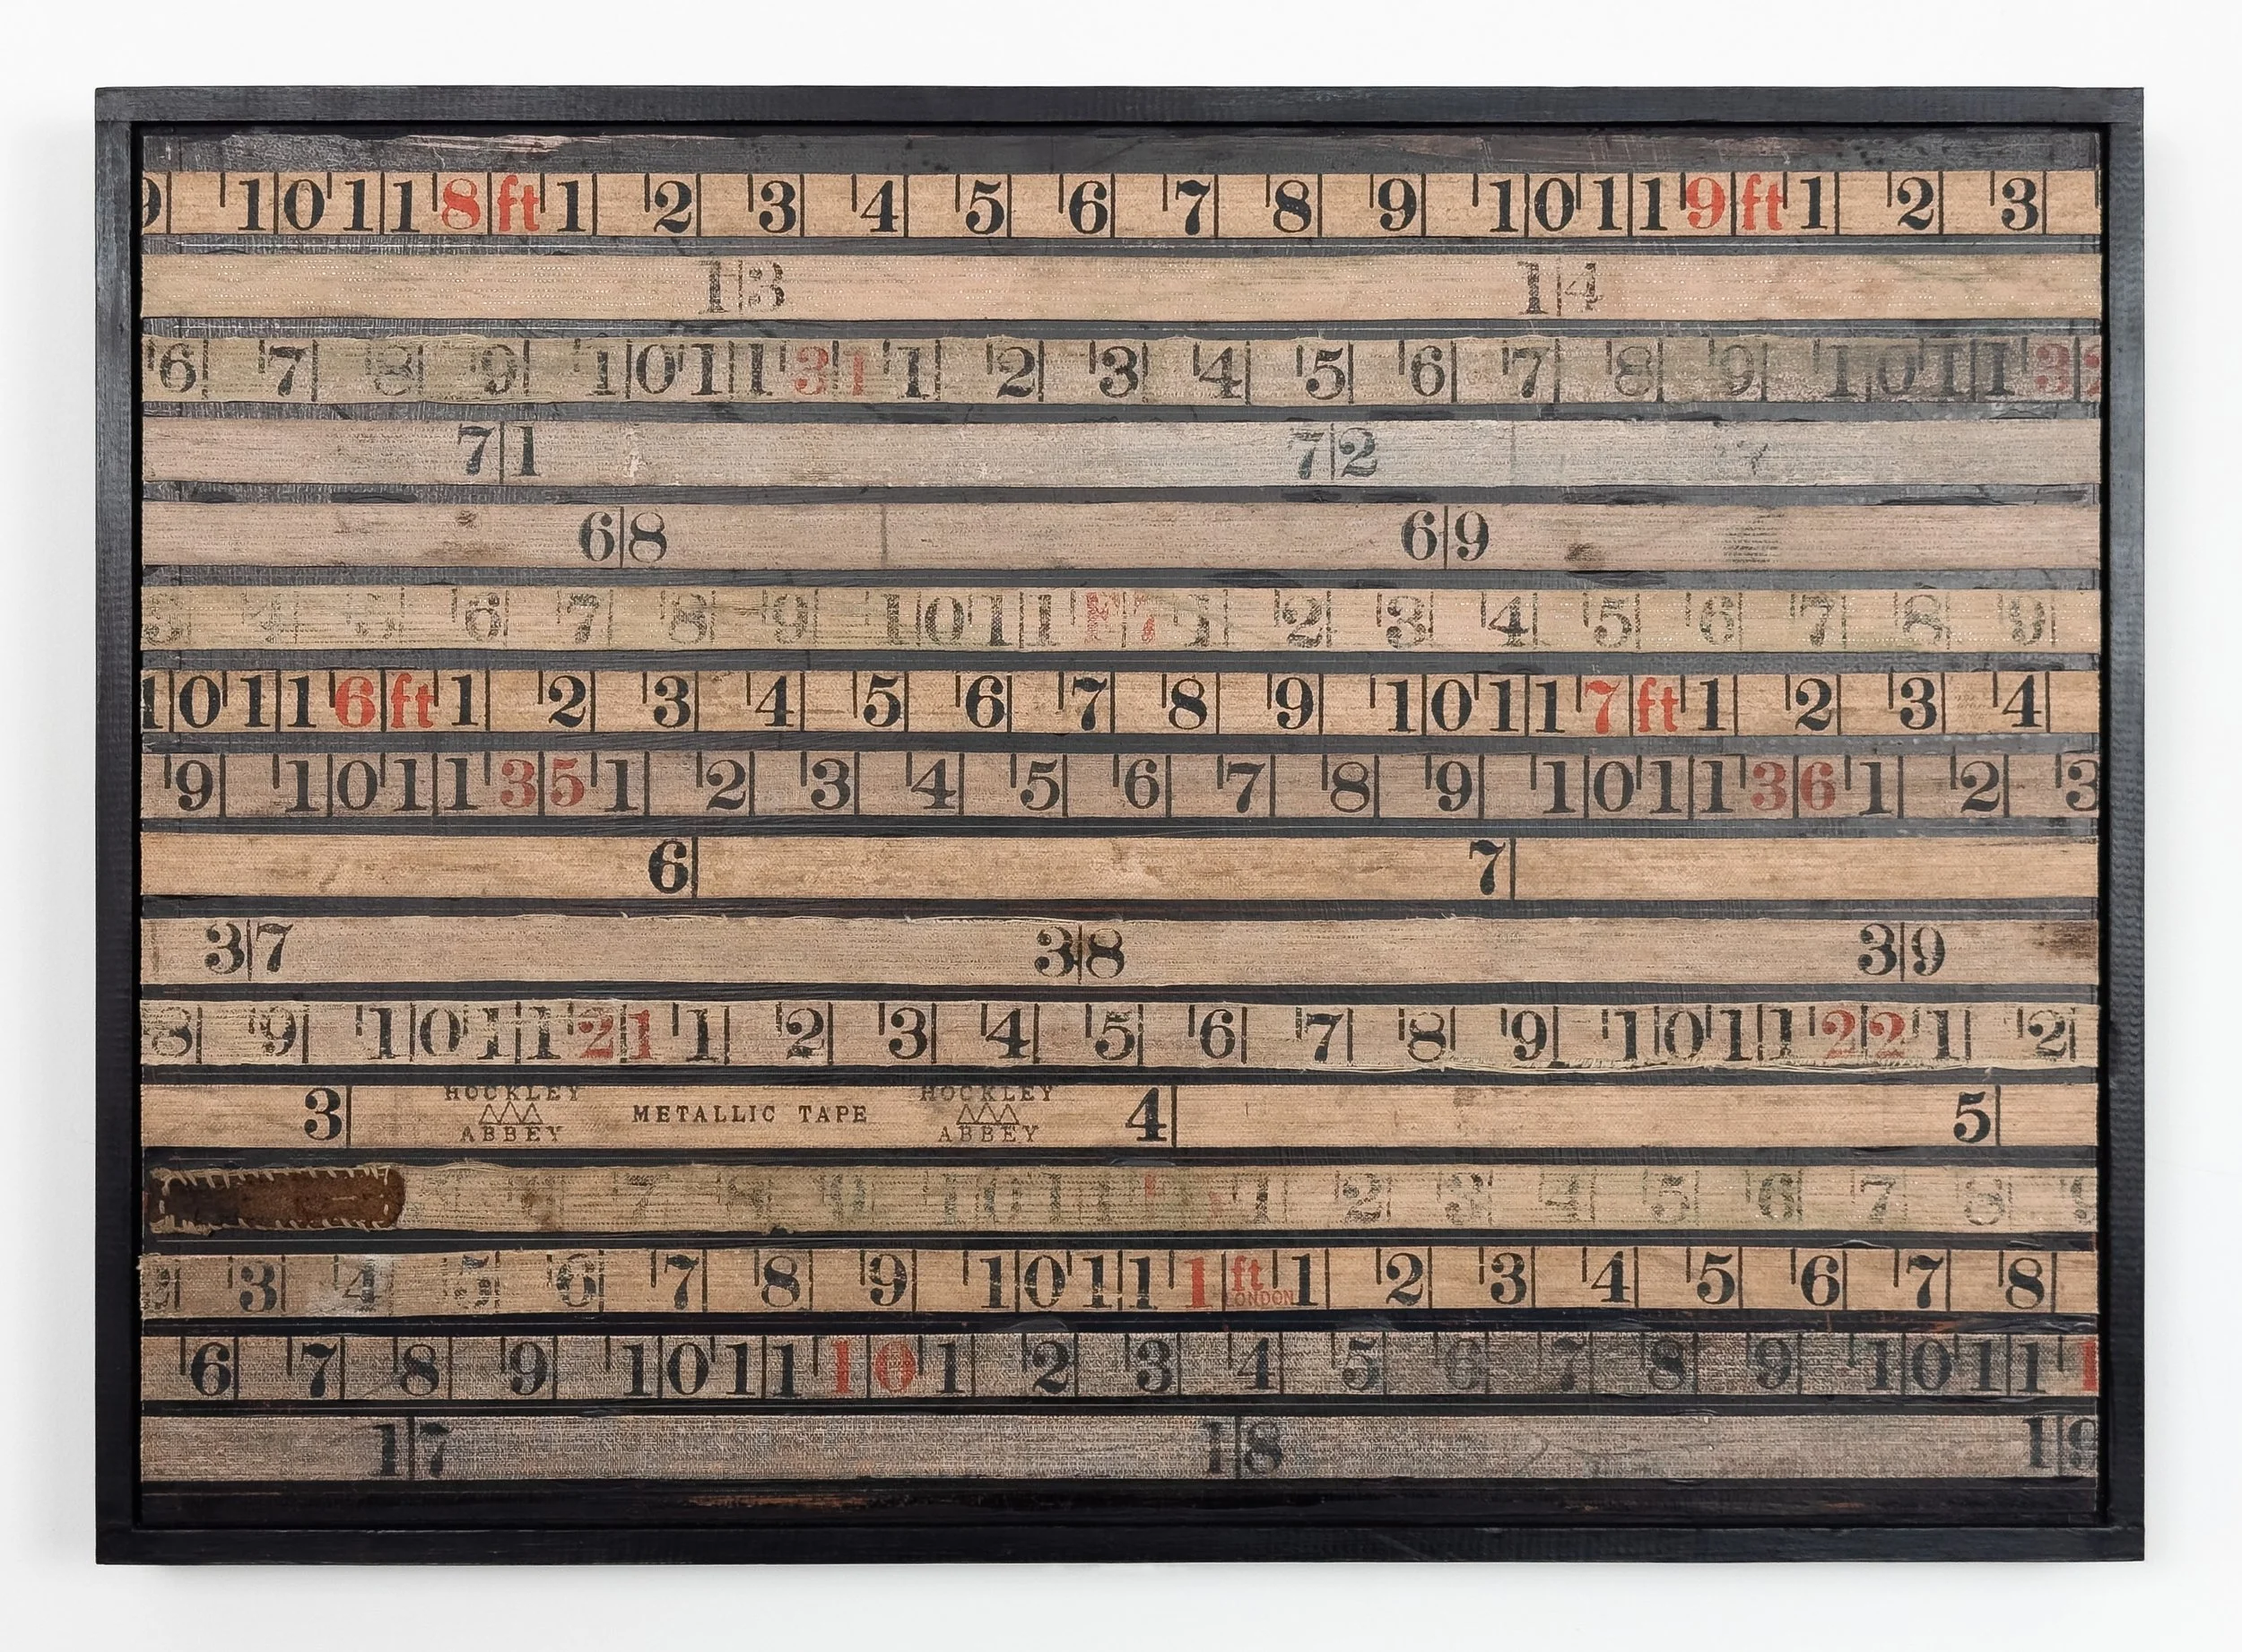 9 10 11 8 ft 1 2 3 4 5 6 7 8 9 10 11 9 ft 1 2 3
13 14
6 7 8 9 10 11 31 1 2 3 4 5 6 7 8 9 10 11 32
71 72
68 69
3 4 5 6 7 8 9 10 11 F 7 1 2 3 4 5 6 7 8 9
10 11 6 ft 1 2 3 4 5 6 7 8 9 10 11 7 ft 1 2 3 4
9 10 11 35 1 2 3 4 5 6 7 8 9 10 11 36 1 2 3
6 7
37 38 39
8 9 10 11 21 1 2 3 4 5 6 7 8 9 10 11 22 1 2
3 HOCKLEY ABBEY METALLIC TAPE HOCKLEY ABBEY 4 5
6 7 8 9 10 11 1 2 3 4 5 6 7 8
2 3 4 5 6 7 8 9 10 11 1 ft LONDON 1 2 3 4 5 6 7 8
6 7 8 9 10 11 10 1 2 3 4 5 6 7 8 9 10 11 1
17 18 19